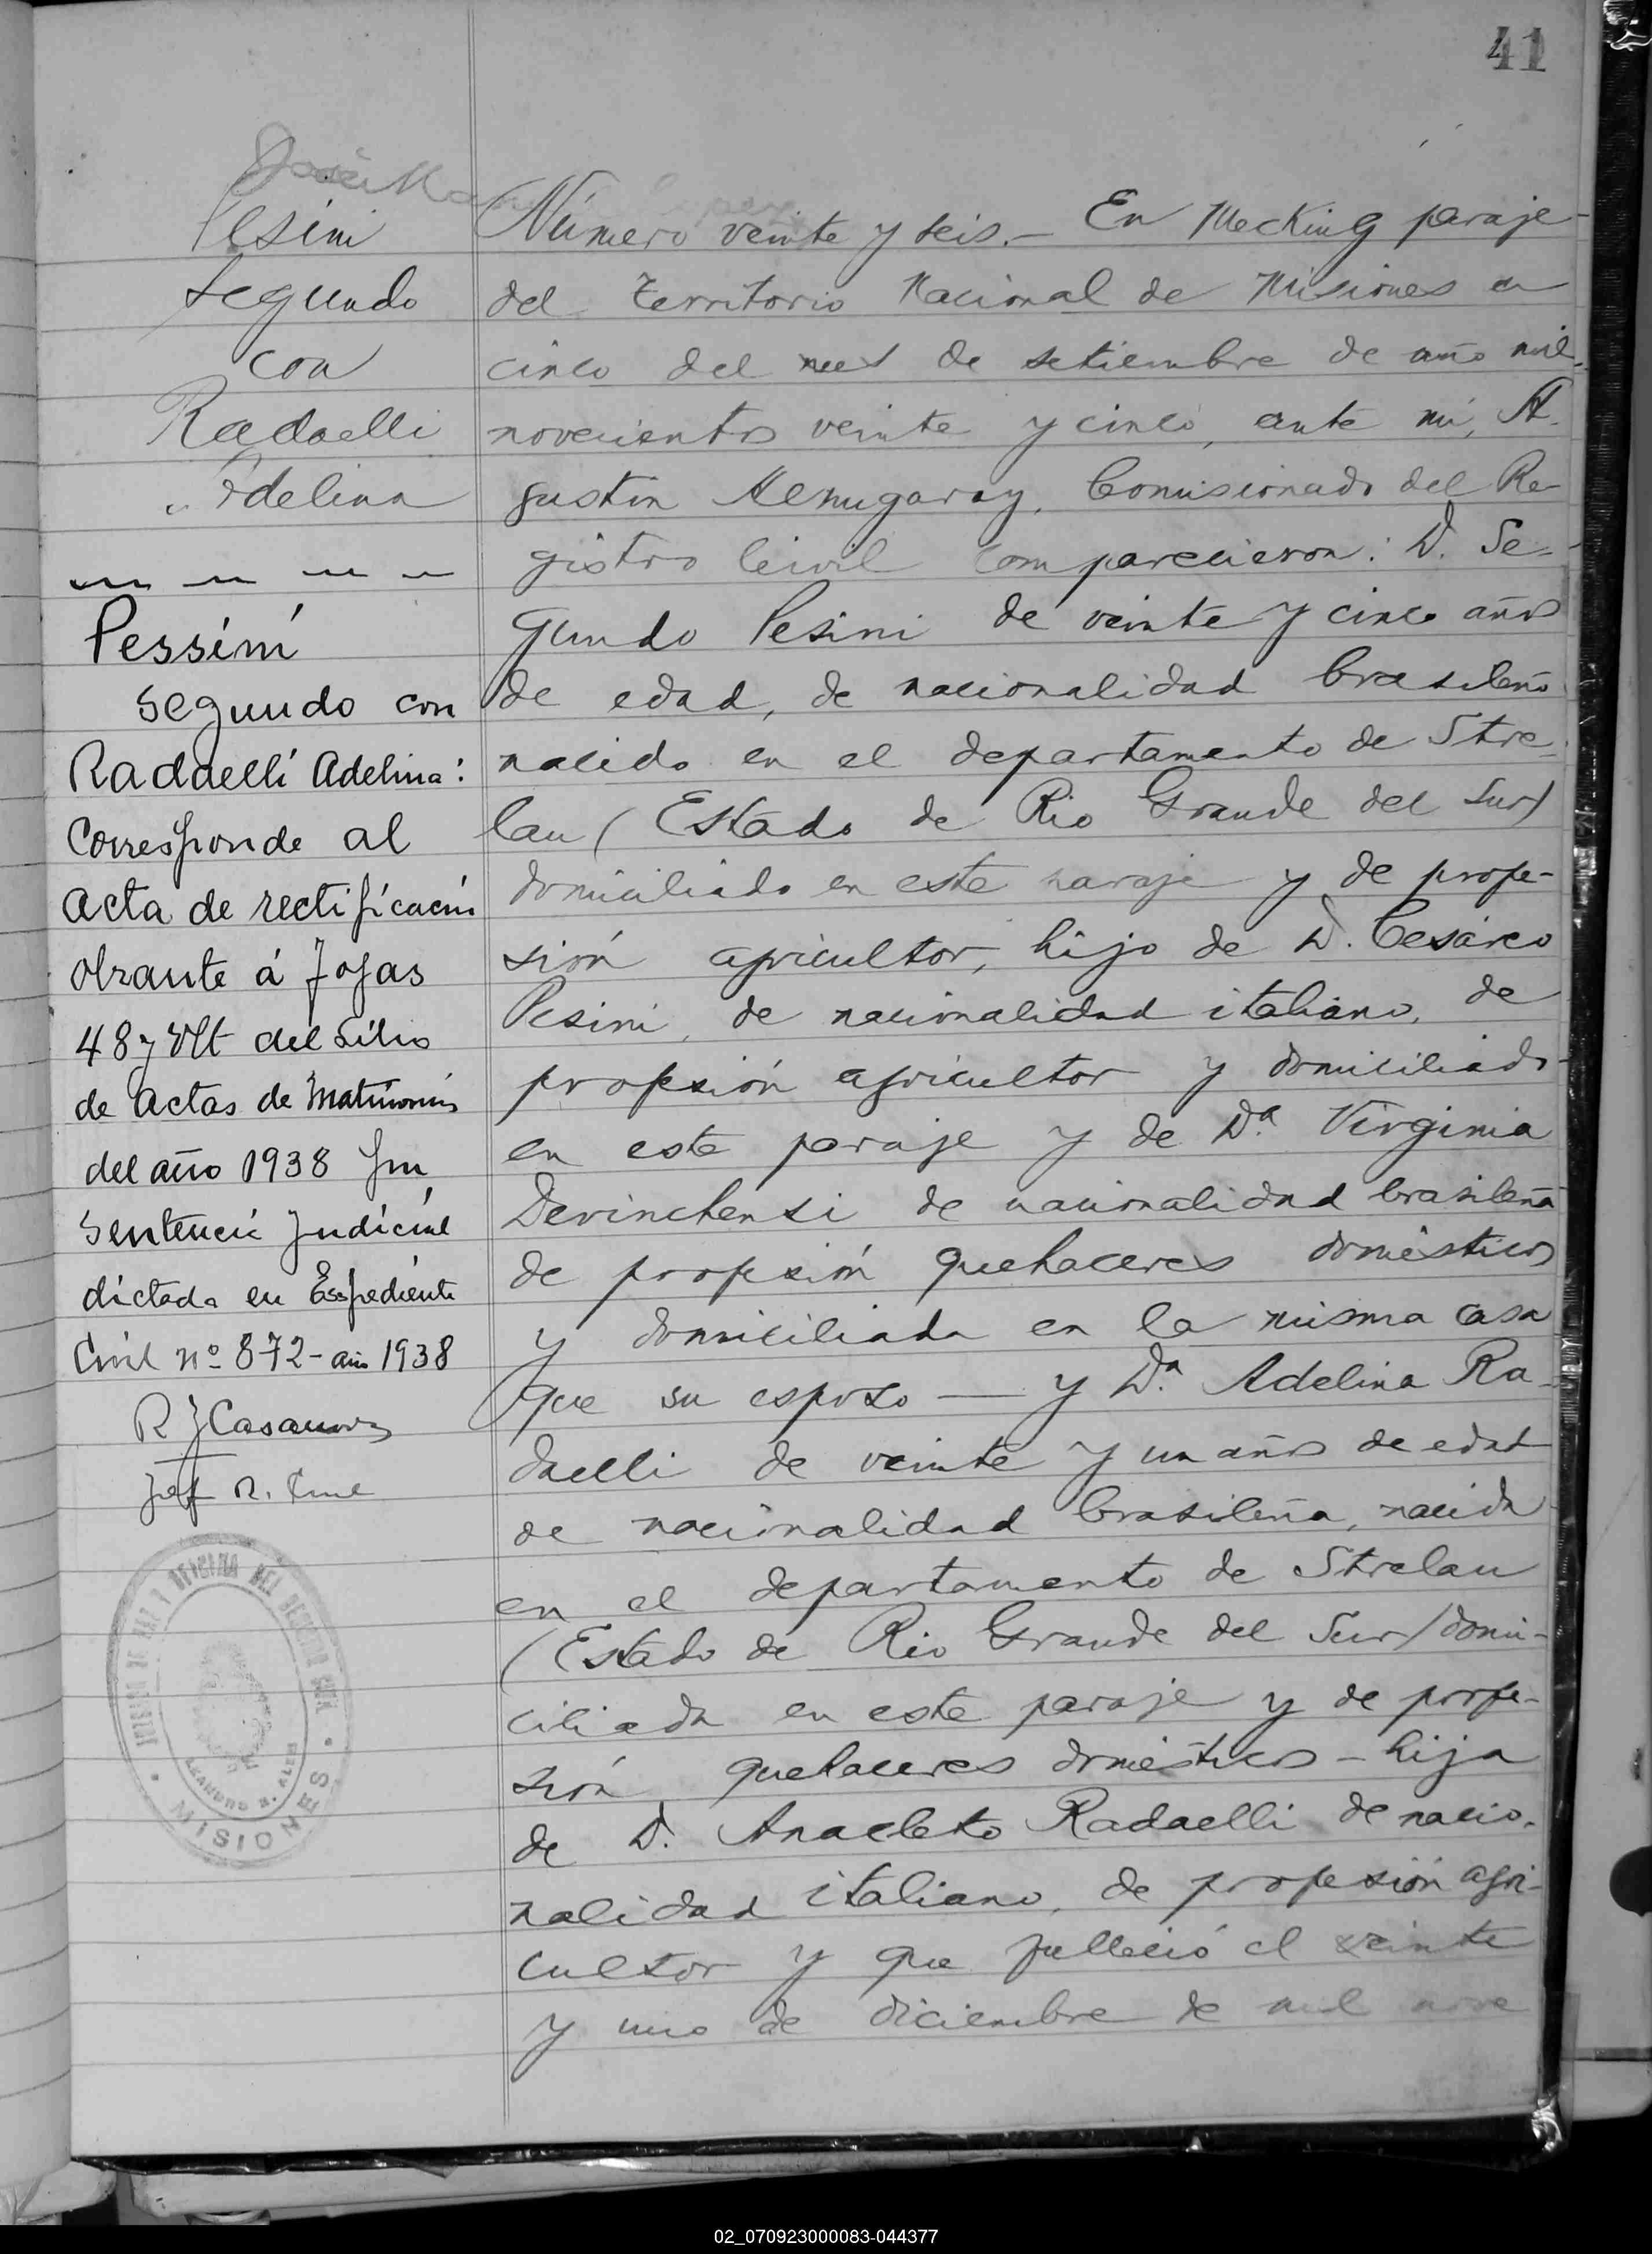 41
Pesini
Segundo
con
Radaelli
Adelina
Pessini
Segundo con
Radaelli Adelina:
Corresponde al
acta de rectificación
obrante á fojas
48 y Vlt del Libro
de Actas de Matrimonios
del año 1938 por
Sentencia Judicial
dictada en Expediente
Civil nº 872 - año 1938
R J Casanova
Jef R. Civil
MISIONES
LEANDRO N. ALEM
Número veinte y seis.— En Mecking paraje
del Territorio Nacional de Misiones a
cinco del mes de setiembre de año mil
novecientos veinte y cinco, ante mi, A-
gustin Comisionado del Re-
gistro Civil comparecieron: D. Se-
gundo Pesini de veinte y cinco años
de edad, de nacionalidad brasileño
nacido en el departamento de Stre-
lau (Estado de Rio Grande del Sur)
domiciliado en este paraje y de profe-
sión agricultor, hijo de D. Cesáreo
Pesini, de nacionalidad italiano, de
profesión agricultor y domiciliado
en este paraje y de Dª Virginia
Devinchensi de nacionalidad brasileña
de profesión quehaceres domésticos
y domiciliada en la misma casa
que su esposo — y Dª Adelina Ra-
daelli de veinte y un años de edad
de nacionalidad brasileña, nacida
en el departamento de Strelau
(Estado de Rio Grande del Sur) domi-
ciliada en este paraje y de profe-
sión quehaceres domésticos - hija
de D. Anacleto Radaelli de nacio-
nalidad italiano, de profesión agri-
cultor y que falleció el veinte
y uno de diciembre de mil nove
02_070923000083-044377